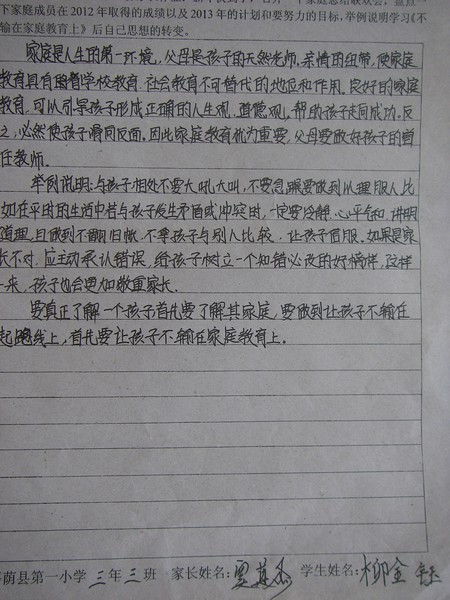 下家庭成员在 2012 年取得的成绩以及 2013 年的计划和要努力的目标，举例说明学习《不
输在家庭教育上》后自己思想的转变。
家庭是人生的第一环境，父母是孩子的天然老师，亲情的纽带，使家庭
教育具有着学校教育、社会教育不可替代的地位和作用。良好的家庭
教育，可以引导孩子形成正确的人生观、道德观。帮助孩子走向成功。反
之，必然使孩子滑向反面。因此家庭教育优为重要，父母要做好孩子的首
任教师。
举例说明：与孩子相处不要大吼大叫，不要急躁要做到以理服人比
如在平时的生活中若与孩子发生矛盾或冲突时，一定要冷静、心平气和，讲明
道理，且做到不翻旧帐，不拿孩子与别人比较，让孩子信服。如果是家
长不对，应主动承认错误，给孩子树立一个知错必改的好榜样，这样
一来，孩子也会更加敬重家长。
要真正了解一个孩子首先要了解其家庭，要做到让孩子不输在
起跑线上，首先要让孩子不输在家庭教育上。
荫县第一小学 三 年 三 班 家长姓名： 学生姓名：柳金